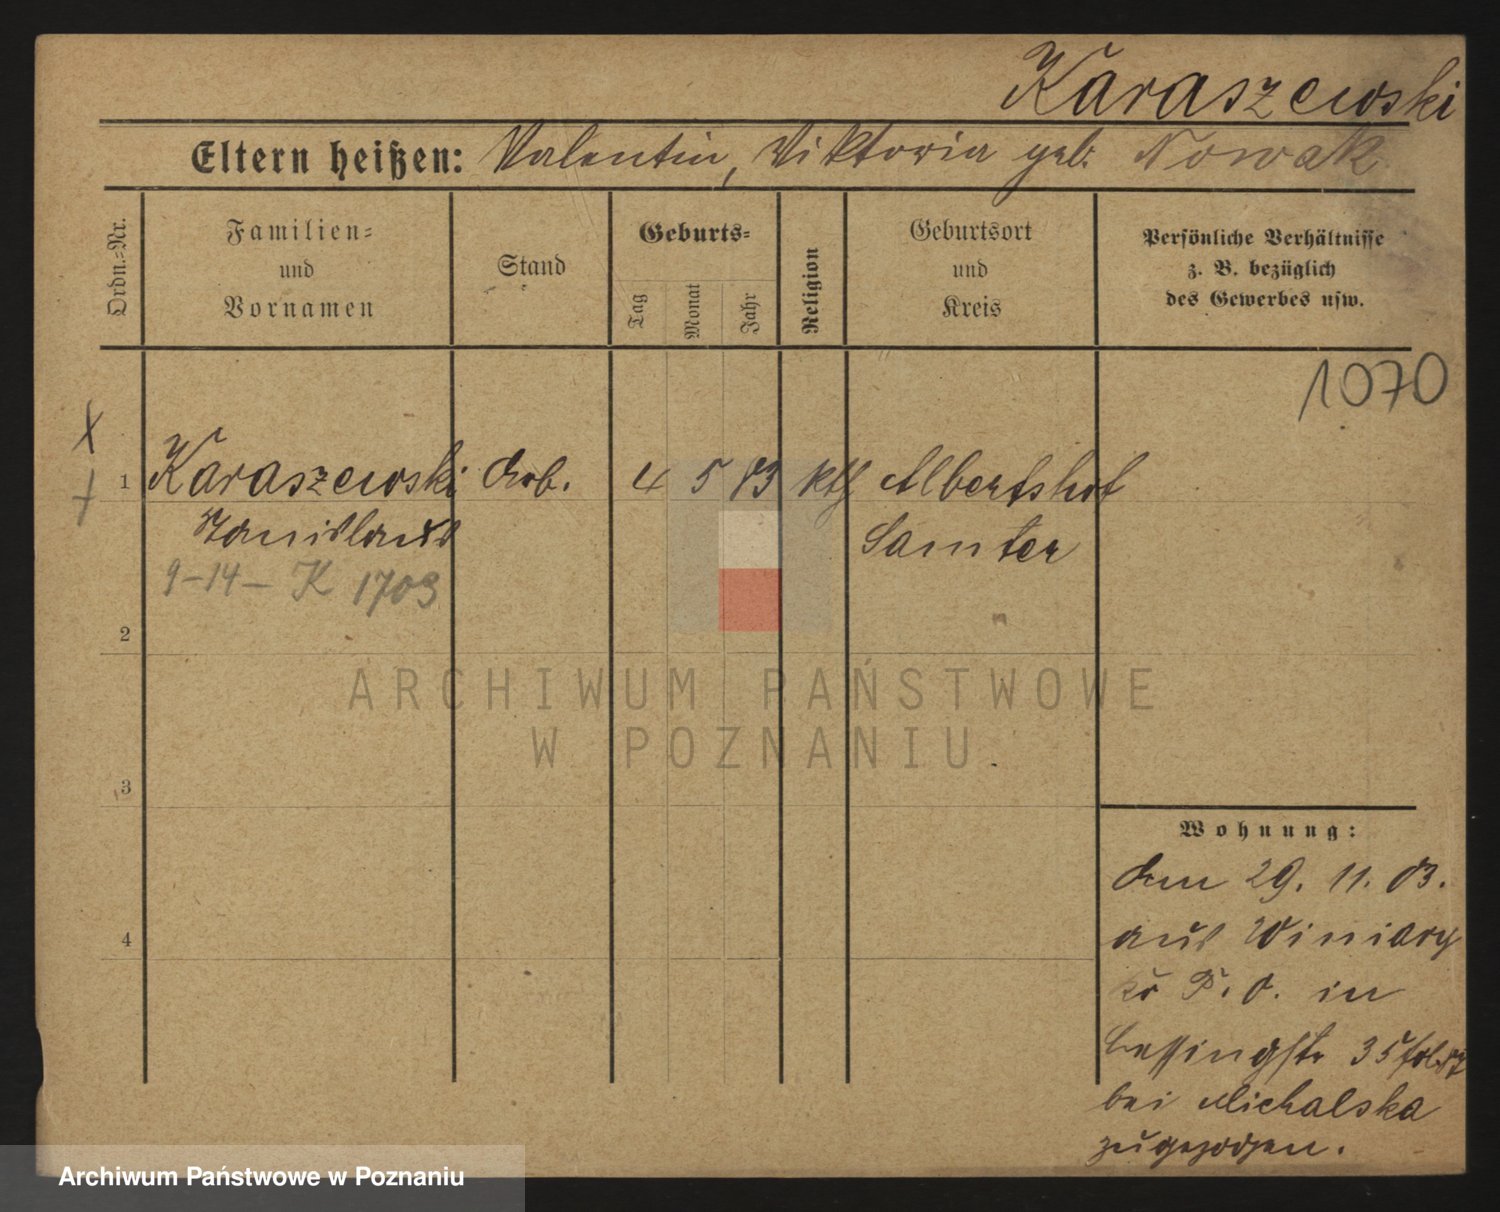 Karaszewski
Eltern heißen: Valentin, Viktoria geb. Nowak
Ordn.-Nr.
Familien-
und
Vornamen
Stand
Geburts-
Tag
Monat
Jahr
Religion
Geburtsort
und
Kreis
Persönliche Verhältnisse
z. B. bezüglich
des Gewerbes usw.
1070
1 Karaszewski Arb. 4 5 83 kth Albertshof
Stanislaus Samter
9-14- K 1703
2
3
4
ARCHIWUM PAŃSTWOWE
W POZNANIU
Wohnung:
Am 29. 11. 03.
aus Winiary
P. O. in
Lessingstr 35
bei Michalska
zugezogen.
Archiwum Państwowe w Poznaniu